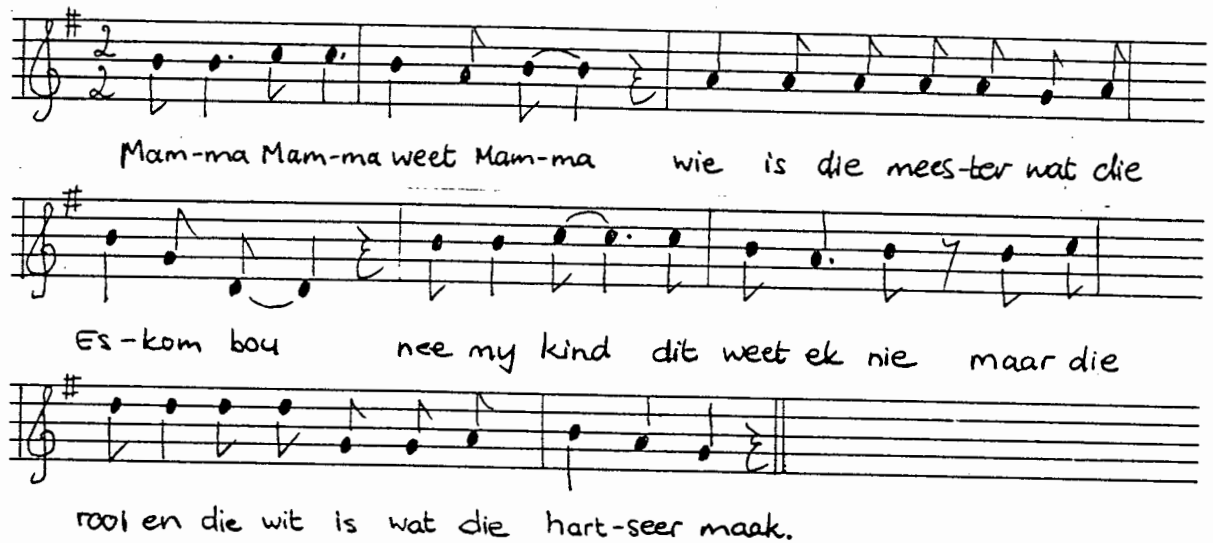 2
2
Mam-ma Mam-ma weet Mam-ma wie is die mees-ter wat die
Es-kom bou nee my kind dit weet ek nie maar die
rooi en die wit is wat die hart-seer maak.